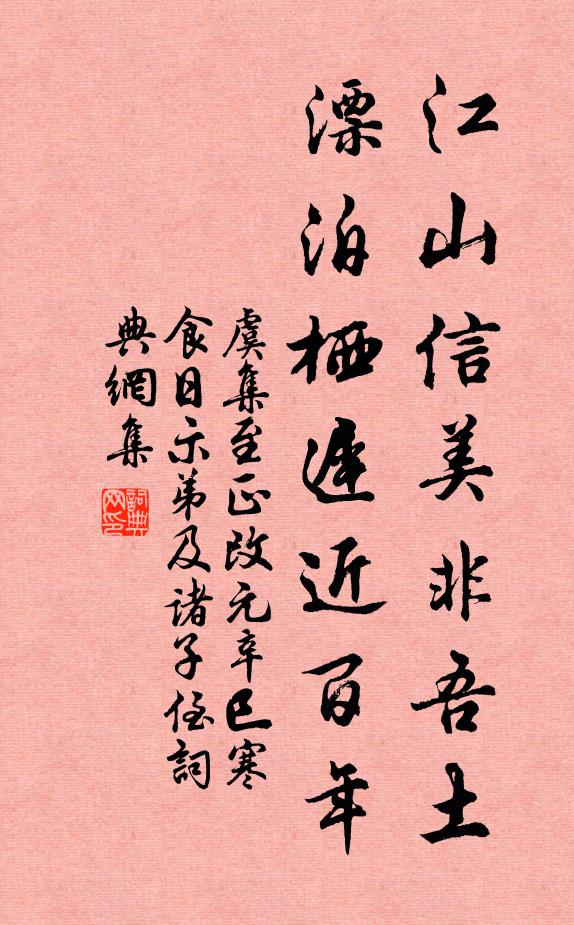 江山信美非吾土
漂泊栖遲近百年
虞集至正改元辛巳寒
食日示弟及諸子侄詞
典網集
詞典
网印